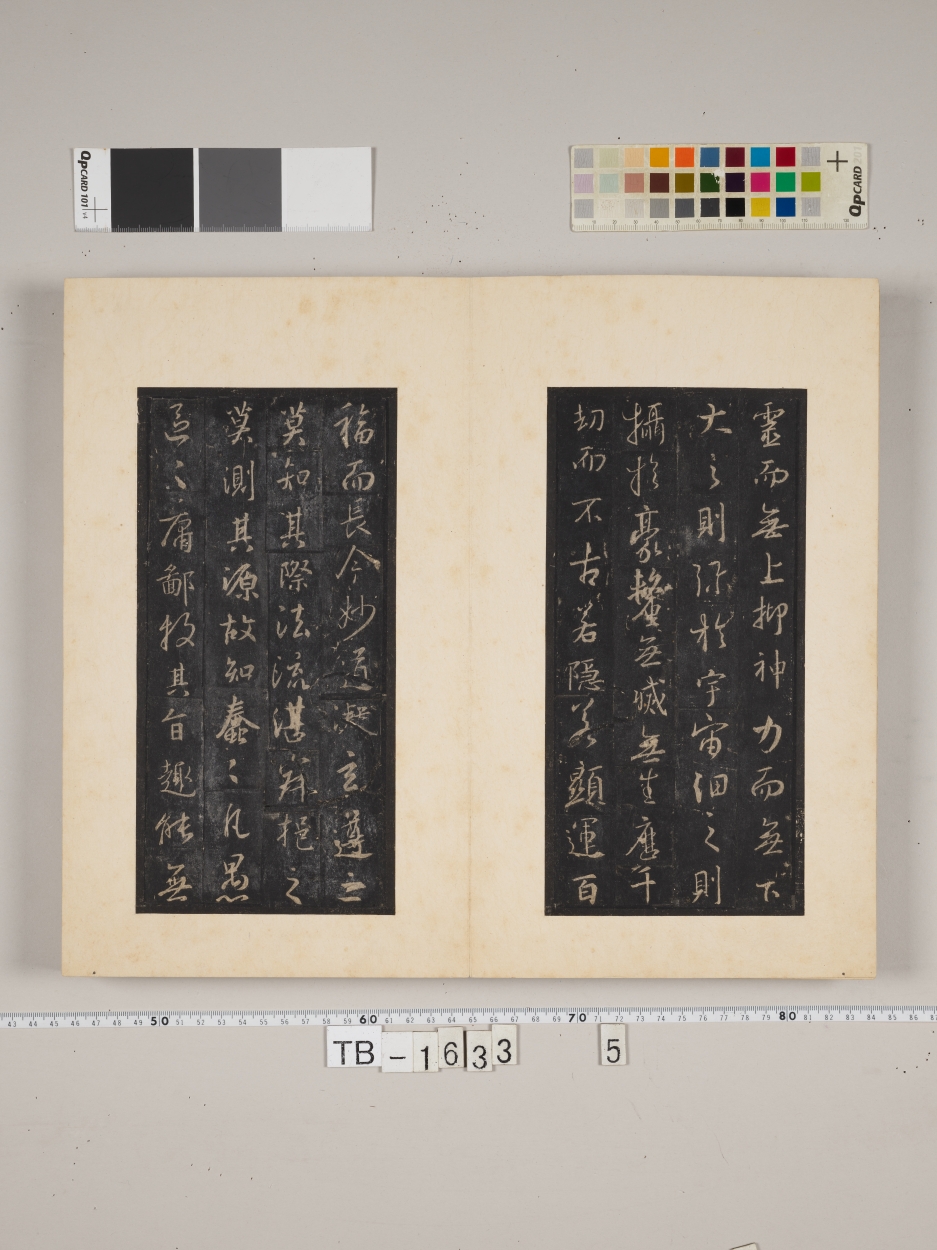 QpCARD 101 v4
QpCARD 201
靈而無上抑神力而無下
大之則彌於宇宙細之則
攝於豪釐無滅無生歷千
劫而不古若隱若顯運百
福而長今妙道凝玄遵之
莫知其際法流湛寂挹之
莫測其源故知蠢〻凡愚
區〻庸鄙投其旨趣能無
43 44 45 46 47 48 49 50 51 52 53 54 55 56 57 58 59 60 61 62 63 64 65 66 67 68 69 70 71 72 73 74 75 76 77 78 79 80 81 82 83 84 85 86
TB-1633 5